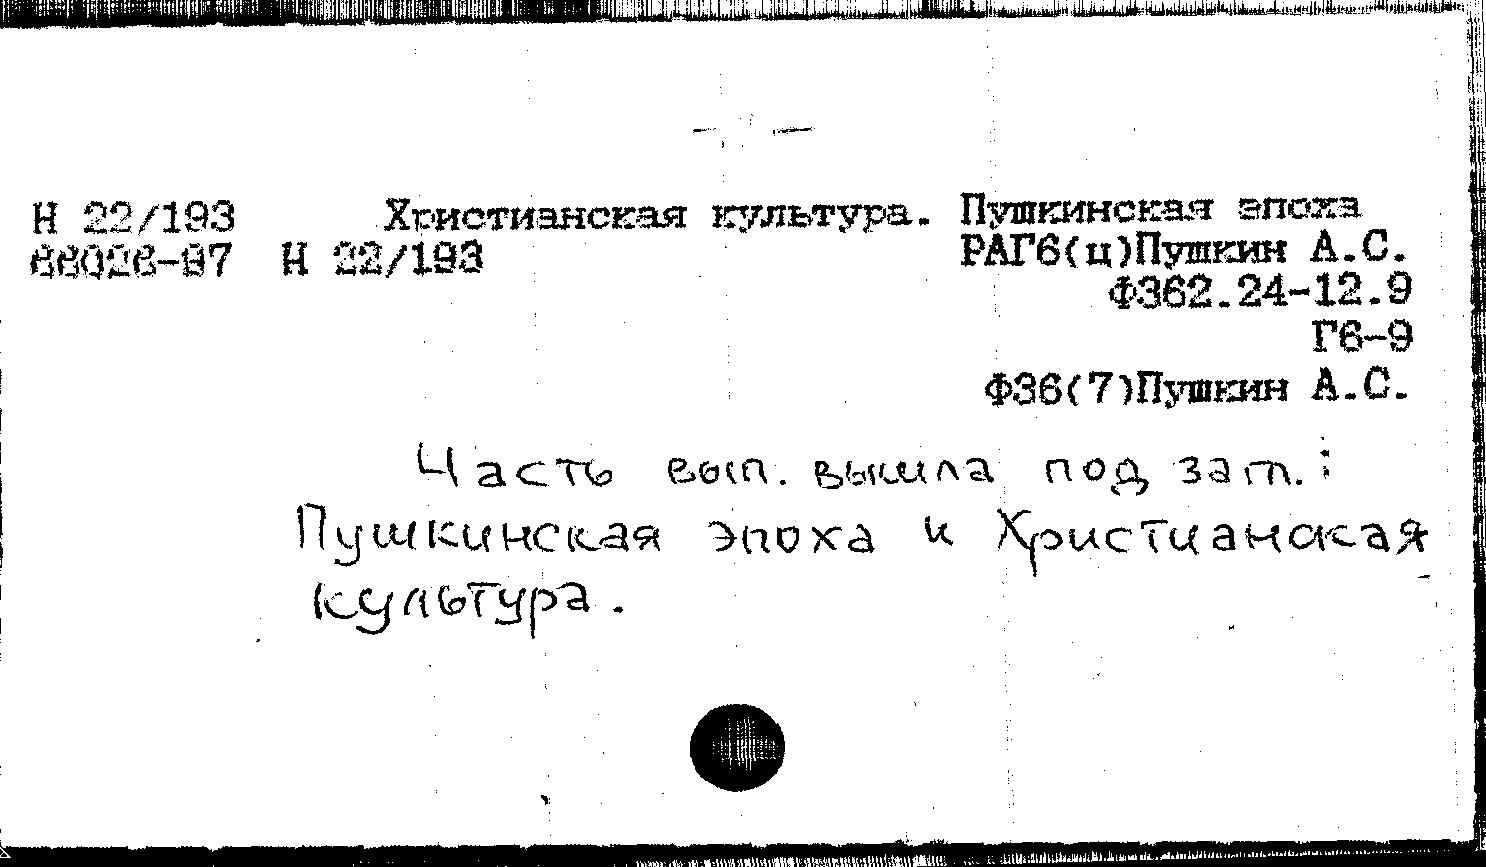 Н 22/193 Христианская культура. Пушкинская эпоха
66026-97 Н 22/193 РАГ6(ц)Пушкин А.С.
Ф362.24-12.9
Г6-9
Ф36(7)Пушкин А.С.
Часть вып. вышла под заг.:
Пушкинская эпоха и Христианская
культура.